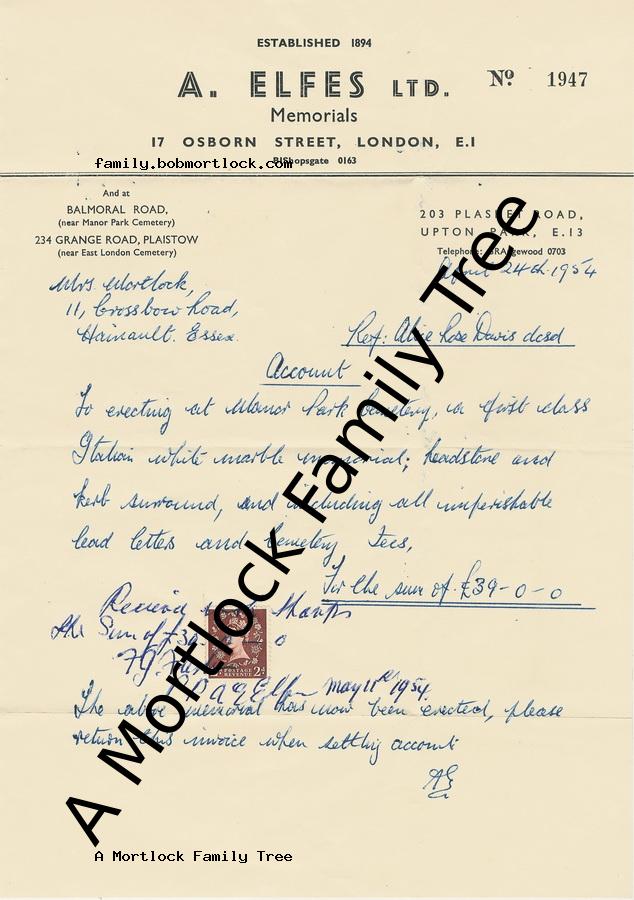 ESTABLISHED 1894
A. ELFES LTD.
Nº 1947
Memorials
17 OSBORN STREET, LONDON, E.1
BIShopsgate 0163
family.bobmortlock.com
And at
BALMORAL ROAD,
(near Manor Park Cemetery)
234 GRANGE ROAD, PLAISTOW
(near East London Cemetery)
203 PLASHET ROAD,
UPTON PARK, E.13
Telephone: GRAngewood 0703
April 24th. 1954
Mrs. Mortlock,
11, Crossbow Road,
Hainault. Essex.
Ref: Alice Rose Davis dcsd
Account
To erecting at Manor Park Cemetery, a first class
Italian white marble memorial; headstone and
kerb surround, and including all imperishable
lead letters and Cemetery Fees,
For the sum of £39-0-0
Received with thanks
the Sum of £39 - 0
POSTAGE REVENUE 2d
A G Elfes May 11th 1954.
The above memorial has now been erected, please
return this invoice when settling account
AE
A Mortlock Family Tree
A Mortlock Family Tree